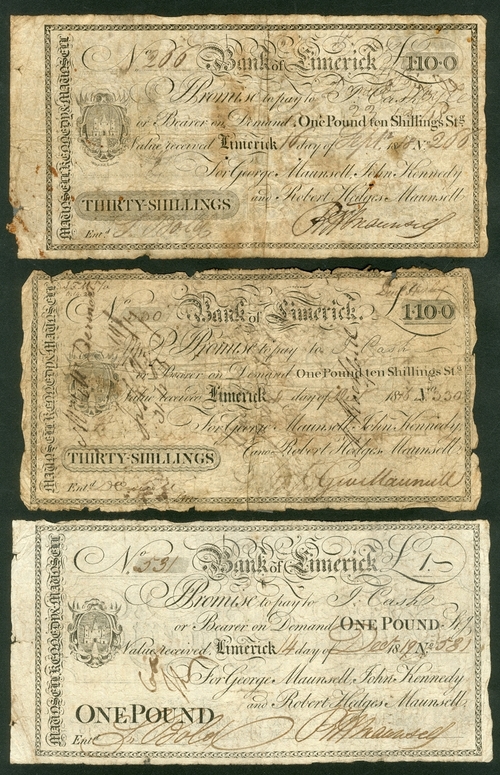 MAUNSELL KENNEDY & MAUNSELL
No 200 Bank of Limerick £1·10·0
I Promise to pay to Cash
or Bearer on Demand One Pound ten Shillings Stg
Value received Limerick day of Sept 18 No 200
For George Maunsell John Kennedy
and Robert Hedges Maunsell
THIRTY-SHILLINGS
Entd
MAUNSELL KENNEDY & MAUNSELL
No Bank of Limerick £1·10·0
I Promise to pay to J. Cash
or Bearer on Demand One Pound ten Shillings Stg
Value received Limerick day of 18 No
For George Maunsell John Kennedy
and Robert Hedges Maunsell
THIRTY-SHILLINGS
Entd Geo Maunsell
MAUNSELL KENNEDY & MAUNSELL
No 531 Bank of Limerick £1-
I Promise to pay to J. Cash
or Bearer on Demand ONE POUND
Value received Limerick 4 day of Decr 1819 No
For George Maunsell John Kennedy
and Robert Hedges Maunsell
ONE POUND
Entd